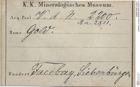 K. K. Mineralogisches Museum.
Acq. Post. D. A. N. 2200.
Name Gold.
Fundort Facebay, Siebenbürgen